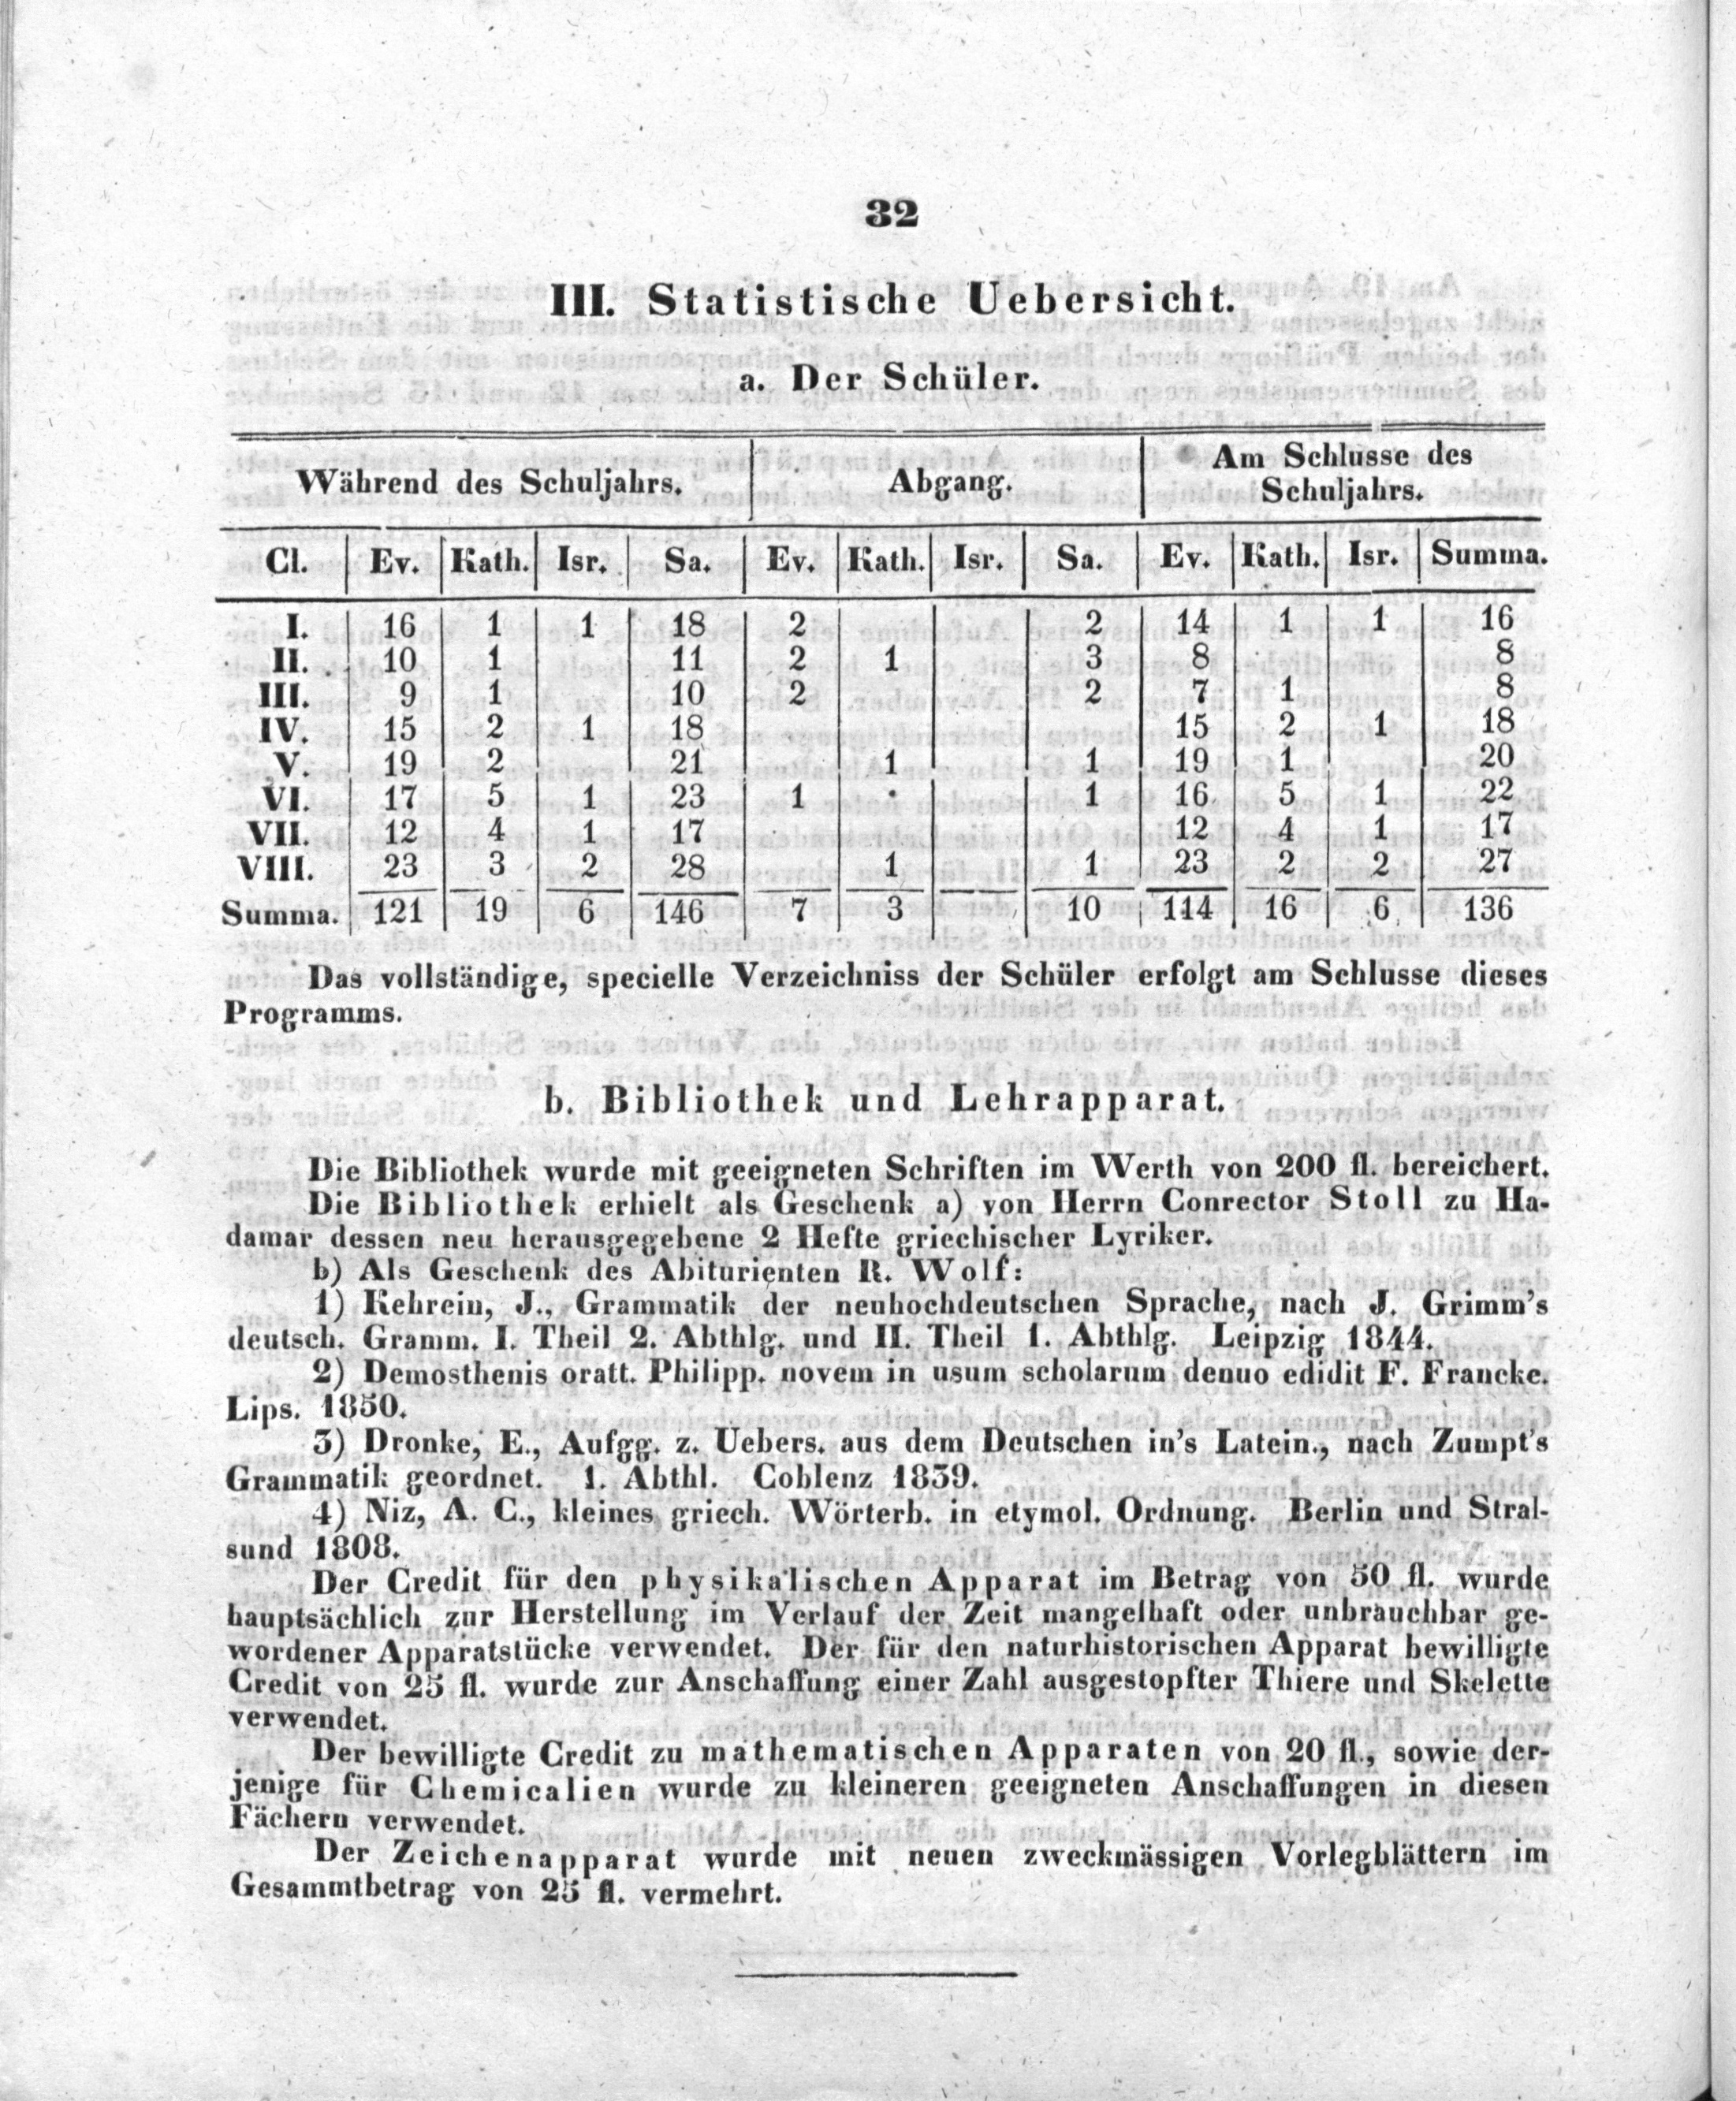 32
III. Statistische Uebersicht.
a. Der Schüler.
Während des Schuljahrs. Abgang. Am Schlusse des
Schuljahrs.
Cl. Ev. Kath. Isr. Sa. Ev. Kath. Isr. Sa. Ev. Kath. Isr. Summa.
I. 16 1 1 18 2 2 14 1 1 16
II. 10 1 11 2 1 3 8 8
III. 9 1 10 2 2 7 1 8
IV. 15 2 1 18 15 2 1 18
V. 19 2 21 1 1 19 1 20
VI. 17 5 1 23 1 1 16 5 1 22
VII. 12 4 1 17 12 4 1 17
VIII. 23 3 2 28 1 1 23 2 2 27
Summa. 121 19 6 146 7 3 10 114 16 6 136
Das vollständige, specielle Verzeichniss der Schüler erfolgt am Schlusse dieses
Programms.
b. Bibliothek und Lehrapparat.
Die Bibliothek wurde mit geeigneten Schriften im Werth von 200 fl. bereichert.
Die Bibliothek erhielt als Geschenk a) von Herrn Conrector Stoll zu Ha-
damar dessen neu herausgegebene 2 Hefte griechischer Lyriker.
b) Als Geschenk des Abiturienten R. Wolf:
1) Kehrein, J., Grammatik der neuhochdeutschen Sprache, nach J. Grimm's
deutsch. Gramm. I. Theil 2. Abthlg. und II. Theil 1. Abthlg. Leipzig 1844.
2) Demosthenis oratt. Philipp. novem in usum scholarum denuo edidit F. Francke.
Lips. 1850.
3) Dronke, E., Aufgg. z. Uebers. aus dem Deutschen in's Latein., nach Zumpt's
Grammatik geordnet. 1. Abthl. Coblenz 1839.
4) Niz, A. C., kleines griech. Wörterb. in etymol. Ordnung. Berlin und Stral-
sund 1808.
Der Credit für den physikalischen Apparat im Betrag von 50 fl. wurde
hauptsächlich zur Herstellung im Verlauf der Zeit mangelhaft oder unbrauchbar ge-
wordener Apparatstücke verwendet. Der für den naturhistorischen Apparat bewilligte
Credit von 25 fl. wurde zur Anschaffung einer Zahl ausgestopfter Thiere und Skelette
verwendet.
Der bewilligte Credit zu mathematischen Apparaten von 20 fl., sowie der-
jenige für Chemicalien wurde zu kleineren geeigneten Anschaffungen in diesen
Fächern verwendet.
Der Zeichenapparat wurde mit neuen zweckmässigen Vorlegblättern im
Gesammtbetrag von 25 fl. vermehrt.